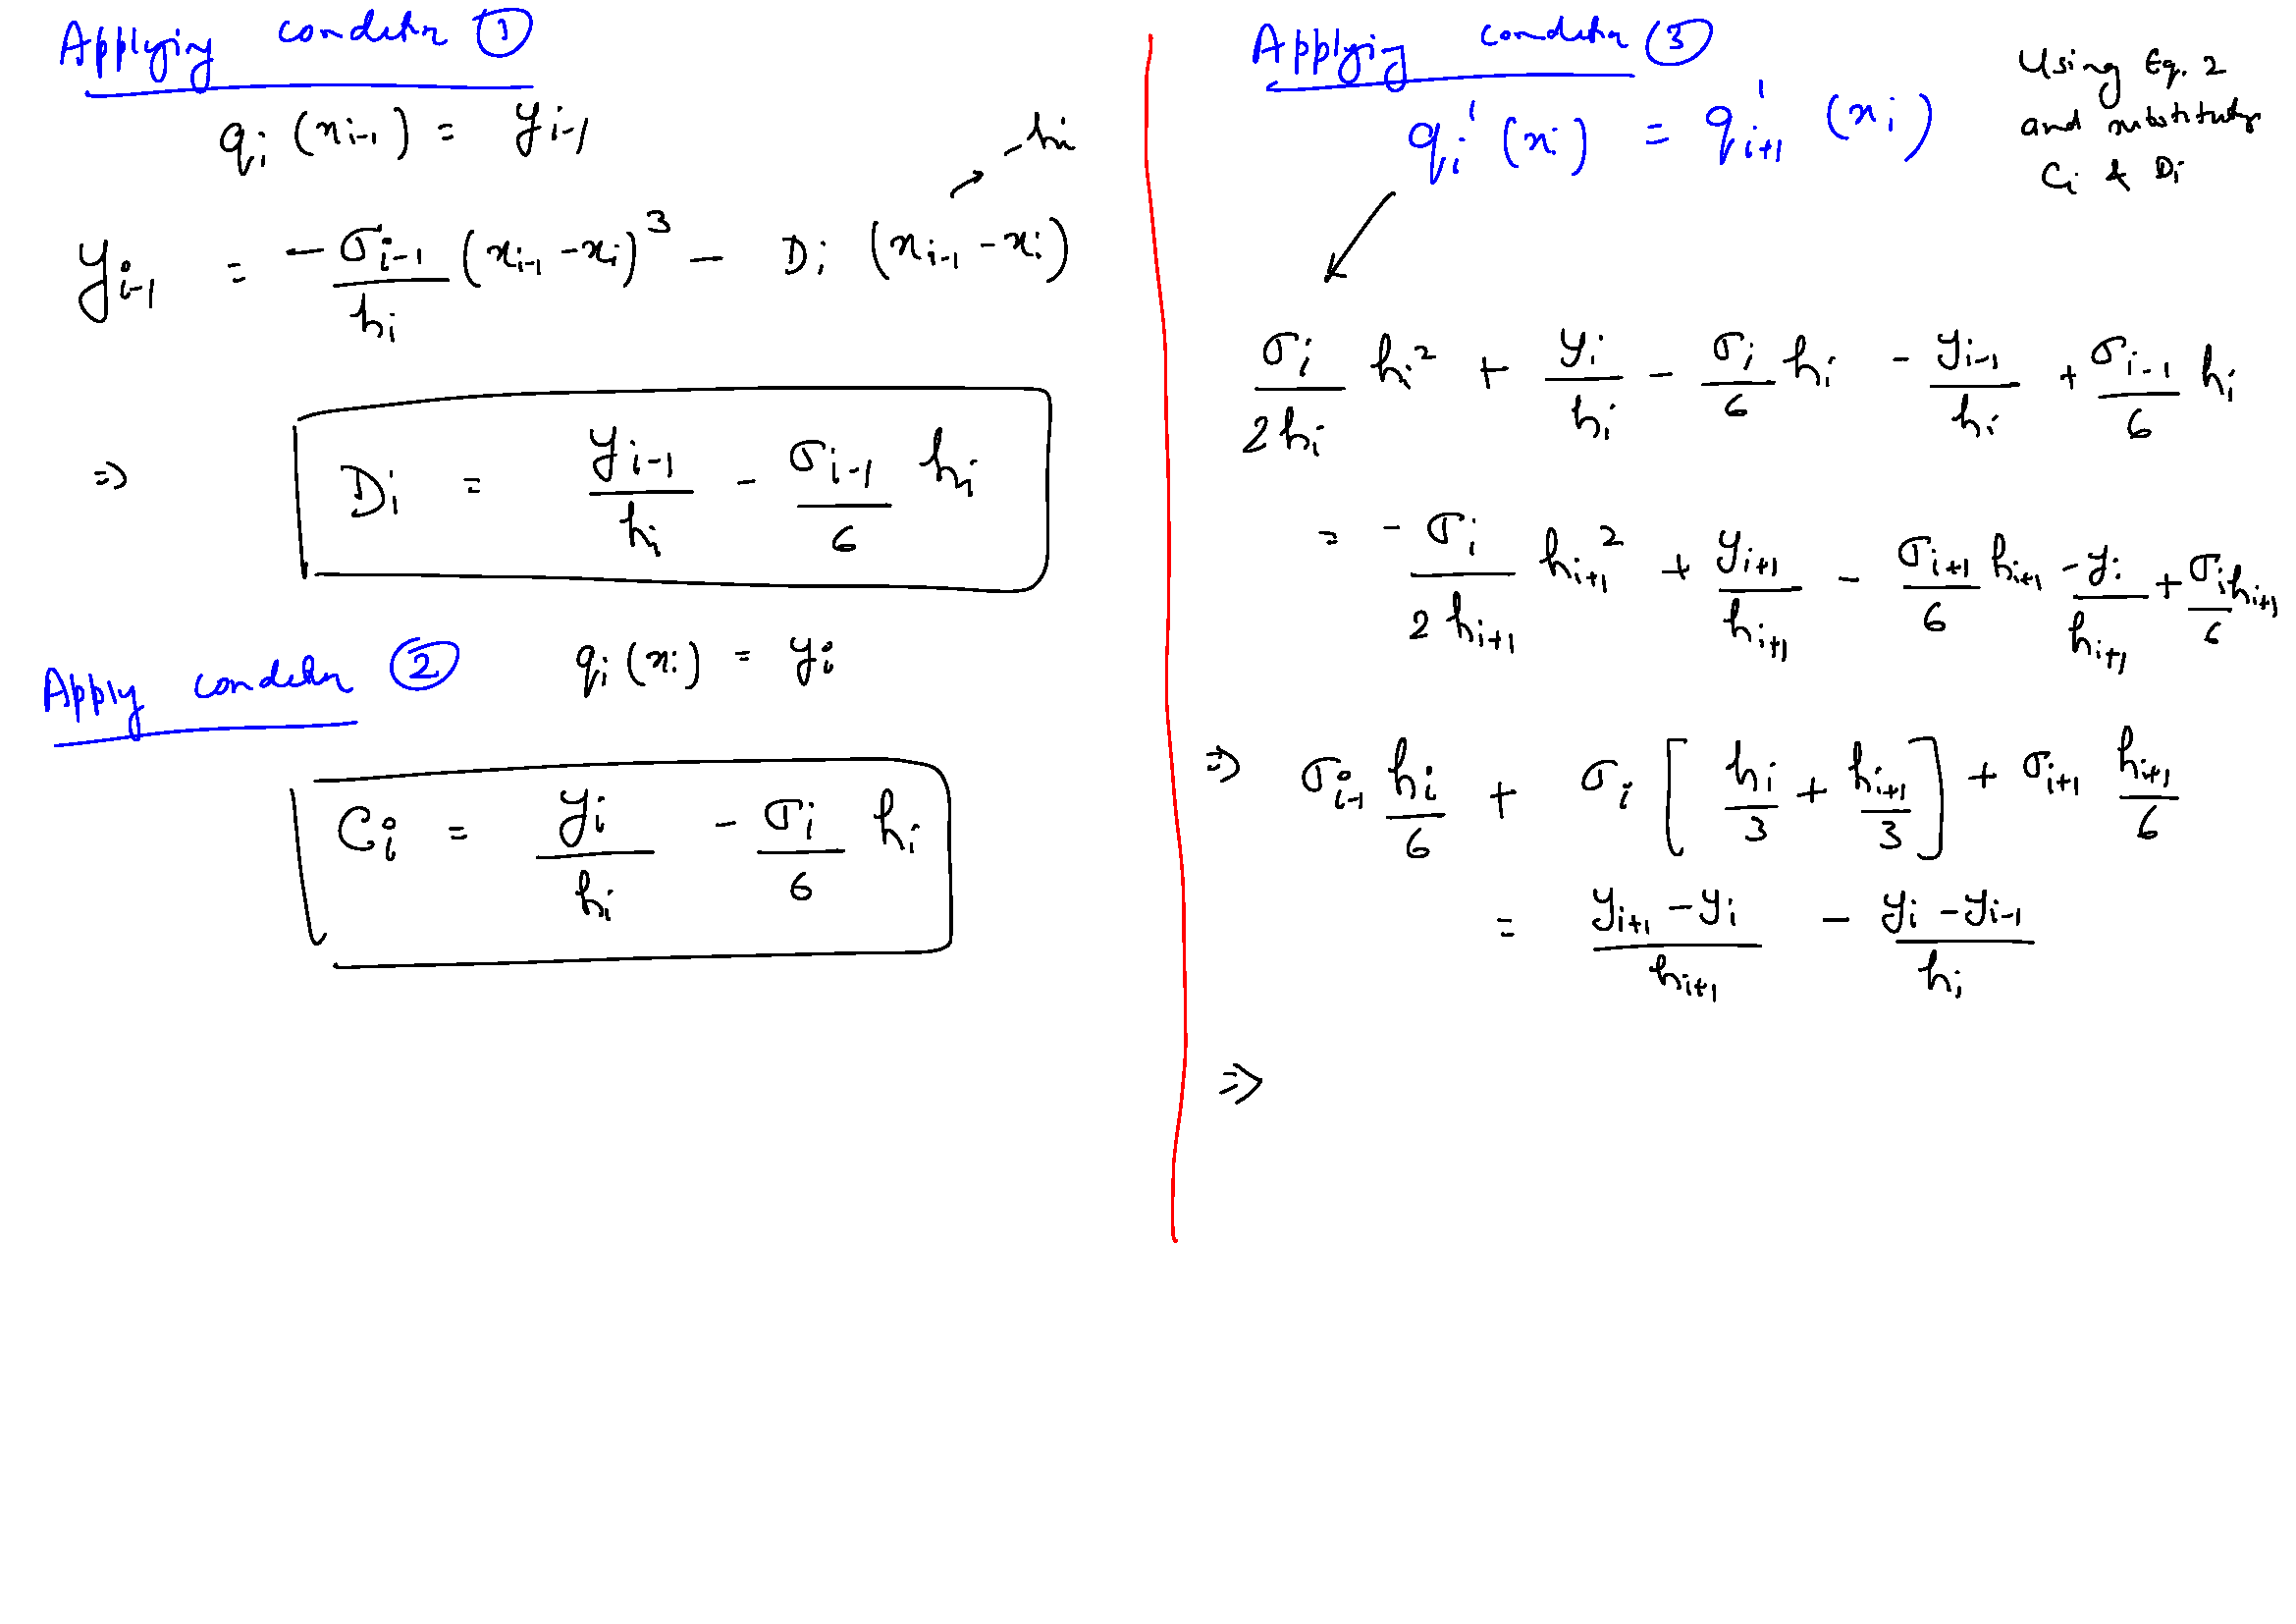 Applying condition ①
qᵢ (xᵢ₋₁) = yᵢ₋₁
-hᵢ
yᵢ₋₁ = -σᵢ₋₁/hᵢ (xᵢ₋₁ - xᵢ)³ - Dᵢ (xᵢ₋₁ - xᵢ)
⇒ Dᵢ = yᵢ₋₁/hᵢ - σᵢ₋₁/6 hᵢ
Apply condition ② qᵢ (xᵢ) = yᵢ
Cᵢ = yᵢ/hᵢ - σᵢ/6 hᵢ
Applying condition ③
qᵢ' (xᵢ) = q'ᵢ₊₁ (xᵢ)
Using Eq. 2
and substituting
Cᵢ & Dᵢ
σᵢ/2hᵢ hᵢ² + yᵢ/hᵢ - σᵢ/6 hᵢ - yᵢ₋₁/hᵢ + σᵢ₋₁/6 hᵢ
= -σᵢ/2hᵢ₊₁ hᵢ₊₁² + yᵢ₊₁/hᵢ₊₁ - σᵢ₊₁/6 hᵢ₊₁ - yᵢ/hᵢ₊₁ + σᵢhᵢ₊₁/6
⇒ σᵢ₋₁ hᵢ/6 + σᵢ [hᵢ/3 + hᵢ₊₁/3] + σᵢ₊₁ hᵢ₊₁/6
= yᵢ₊₁ - yᵢ/hᵢ₊₁ - yᵢ - yᵢ₋₁/hᵢ
⇒